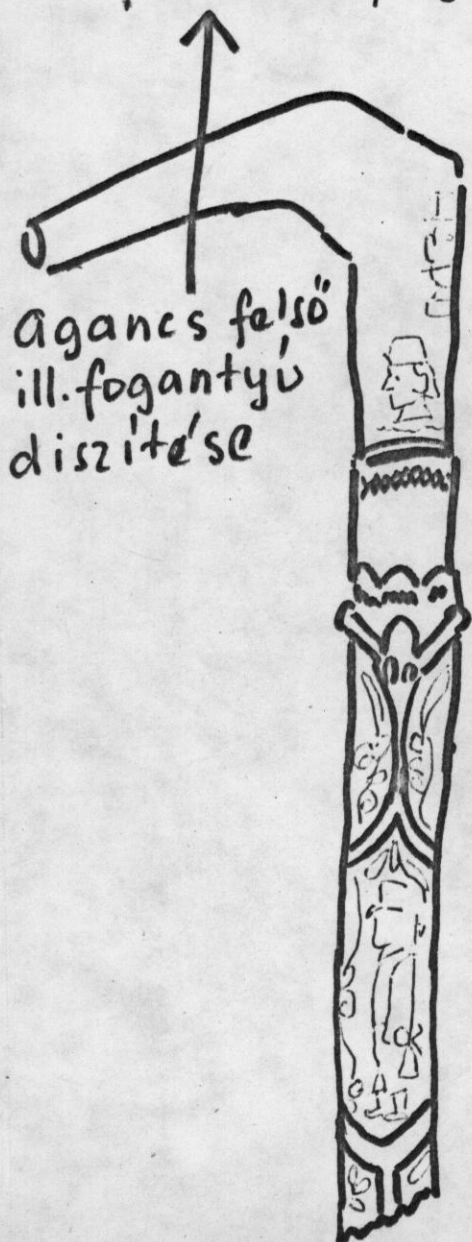 agancs felső
ill. fogantyú
diszítése